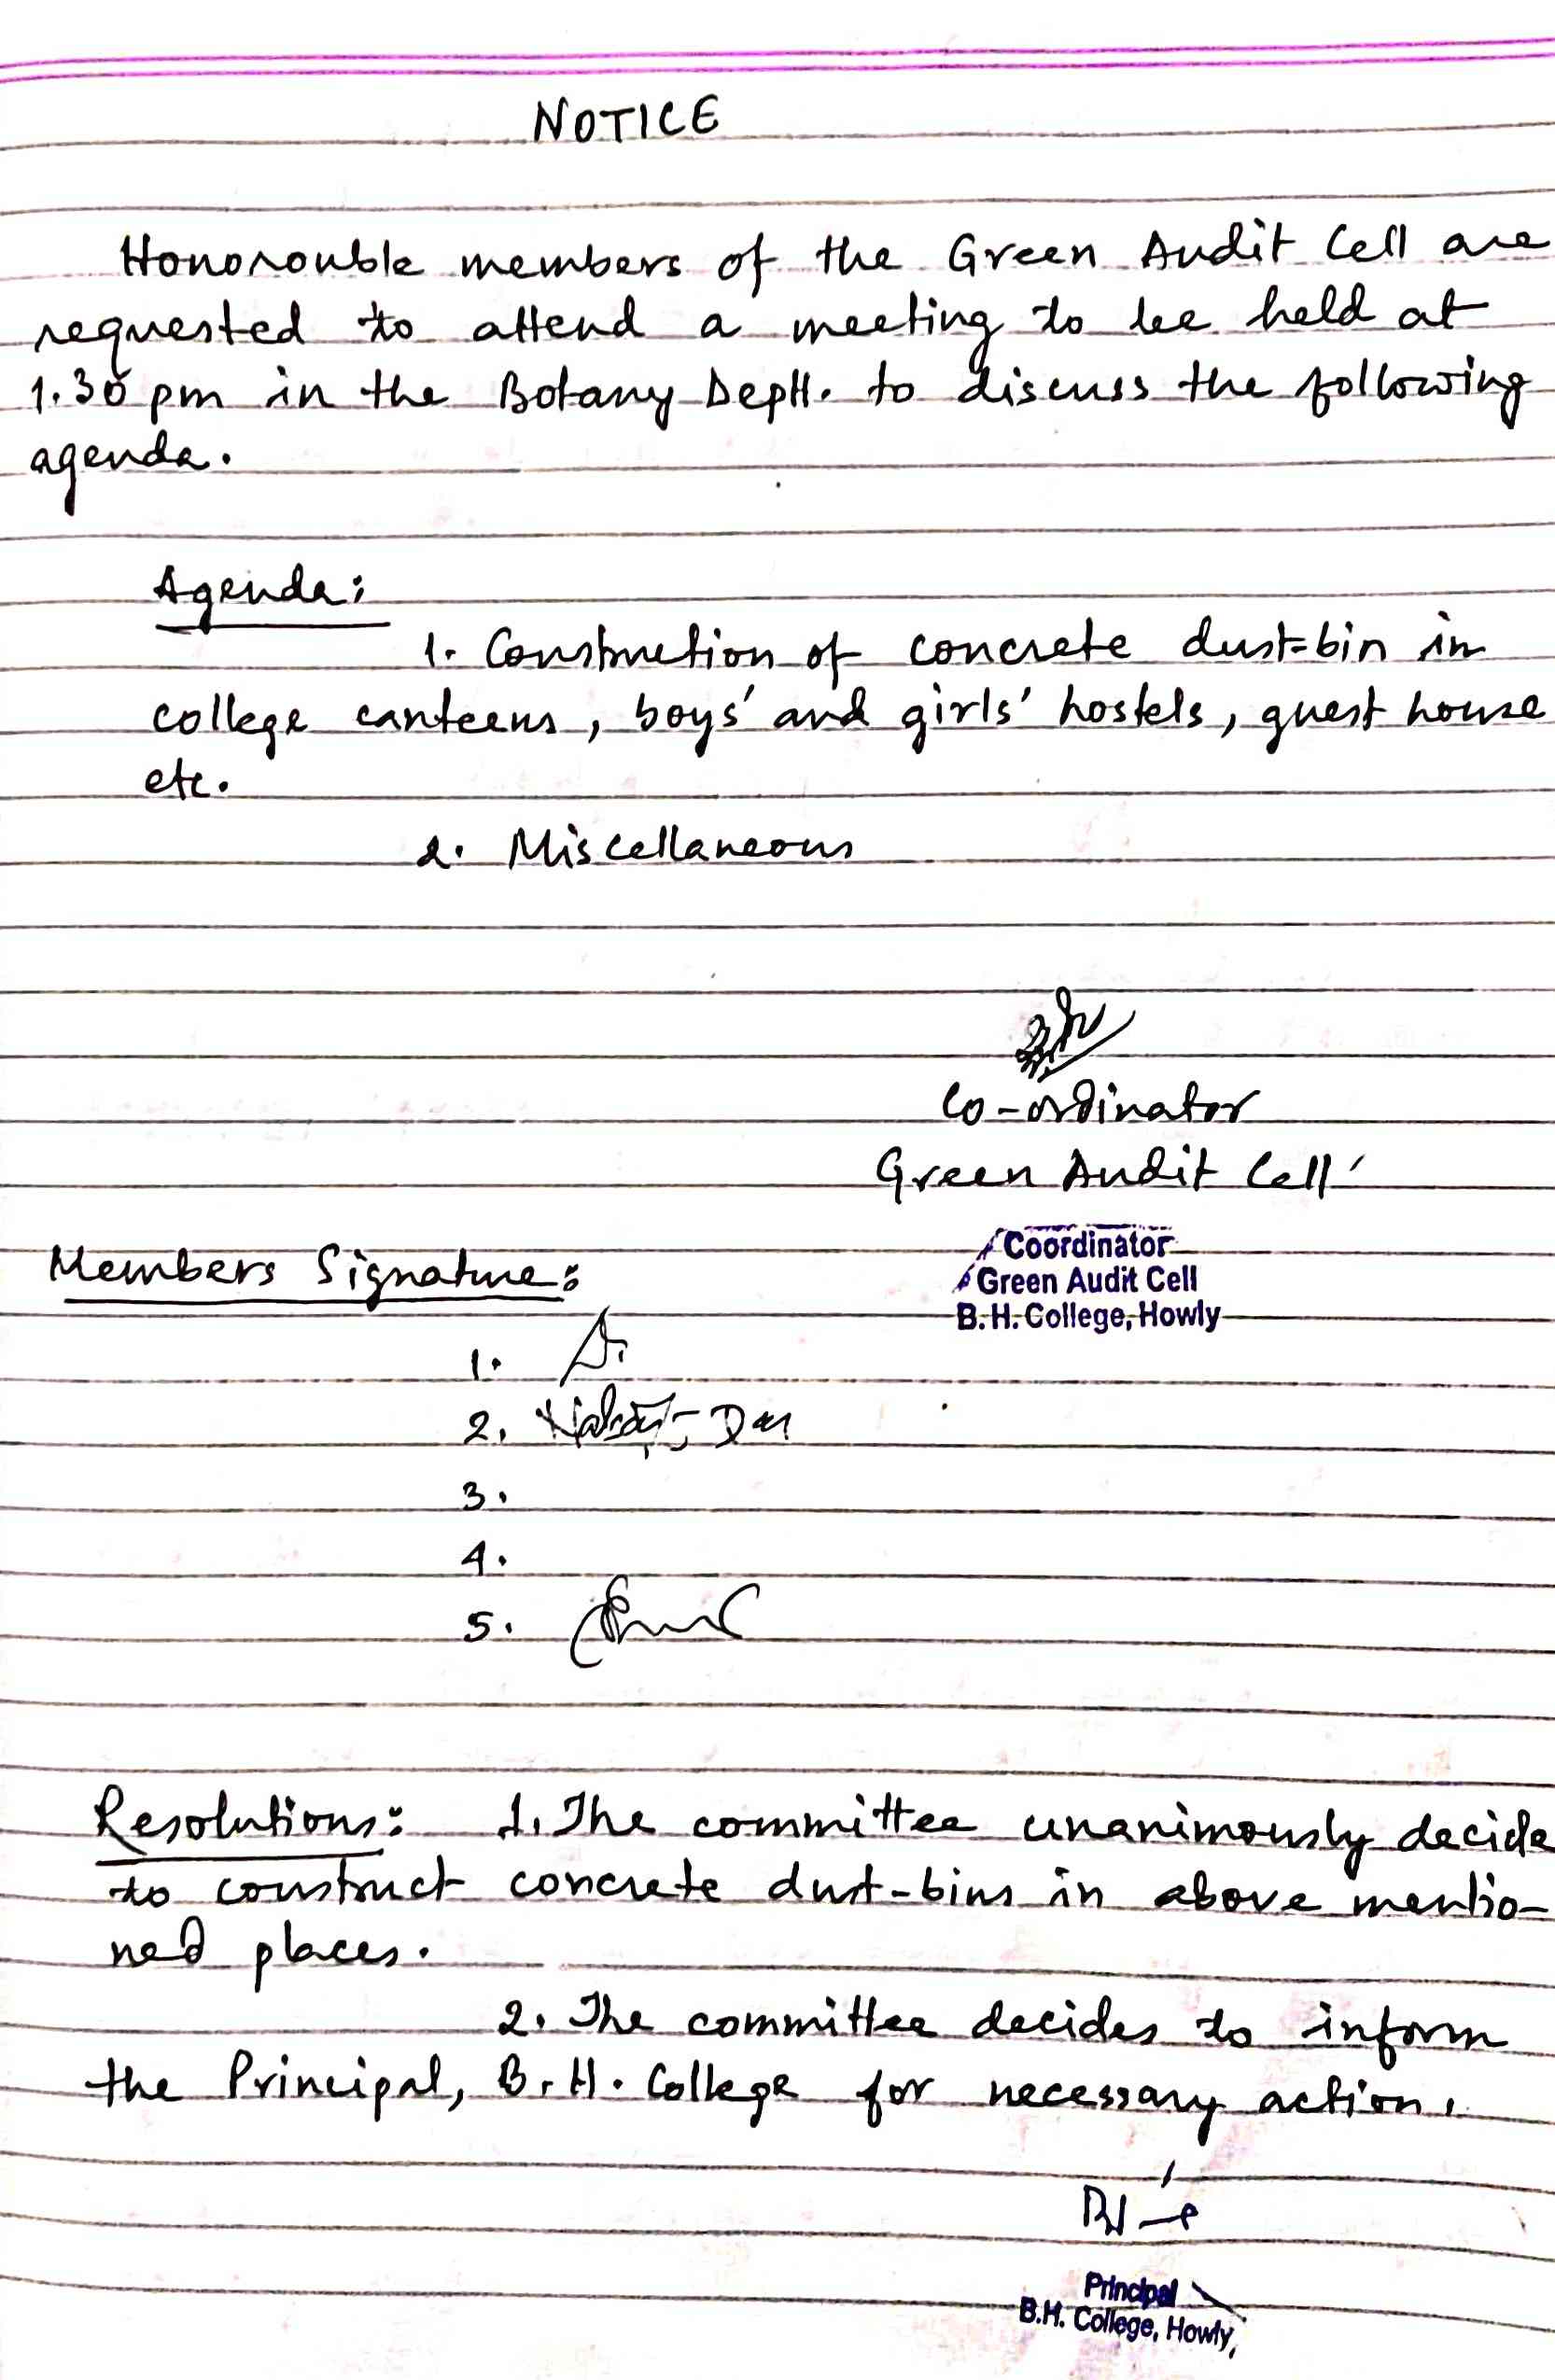 NOTICE
Honorouble members of the Green Audit Cell are
requested to attend a meeting to be held at
1.30 pm in the Botany Deptt. to discuss the following
agenda.
Agenda:
1. Construction of concrete dust-bin in
college canteens, boys' and girls' hostels, guest house
etc.
2. Miscellaneous
Co-ordinator
Green Audit Cell
Coordinator
Green Audit Cell
B.H. College, Howly
Members Signature:
1.
2.
3.
4.
5.
Resolutions: 1. The committee unanimously decide
to construct concrete dust-bins in above mentio-
ned places.
2. The committee decides to inform
the Principal, B.H. College for necessary action.
Principal
B.H. College, Howly,